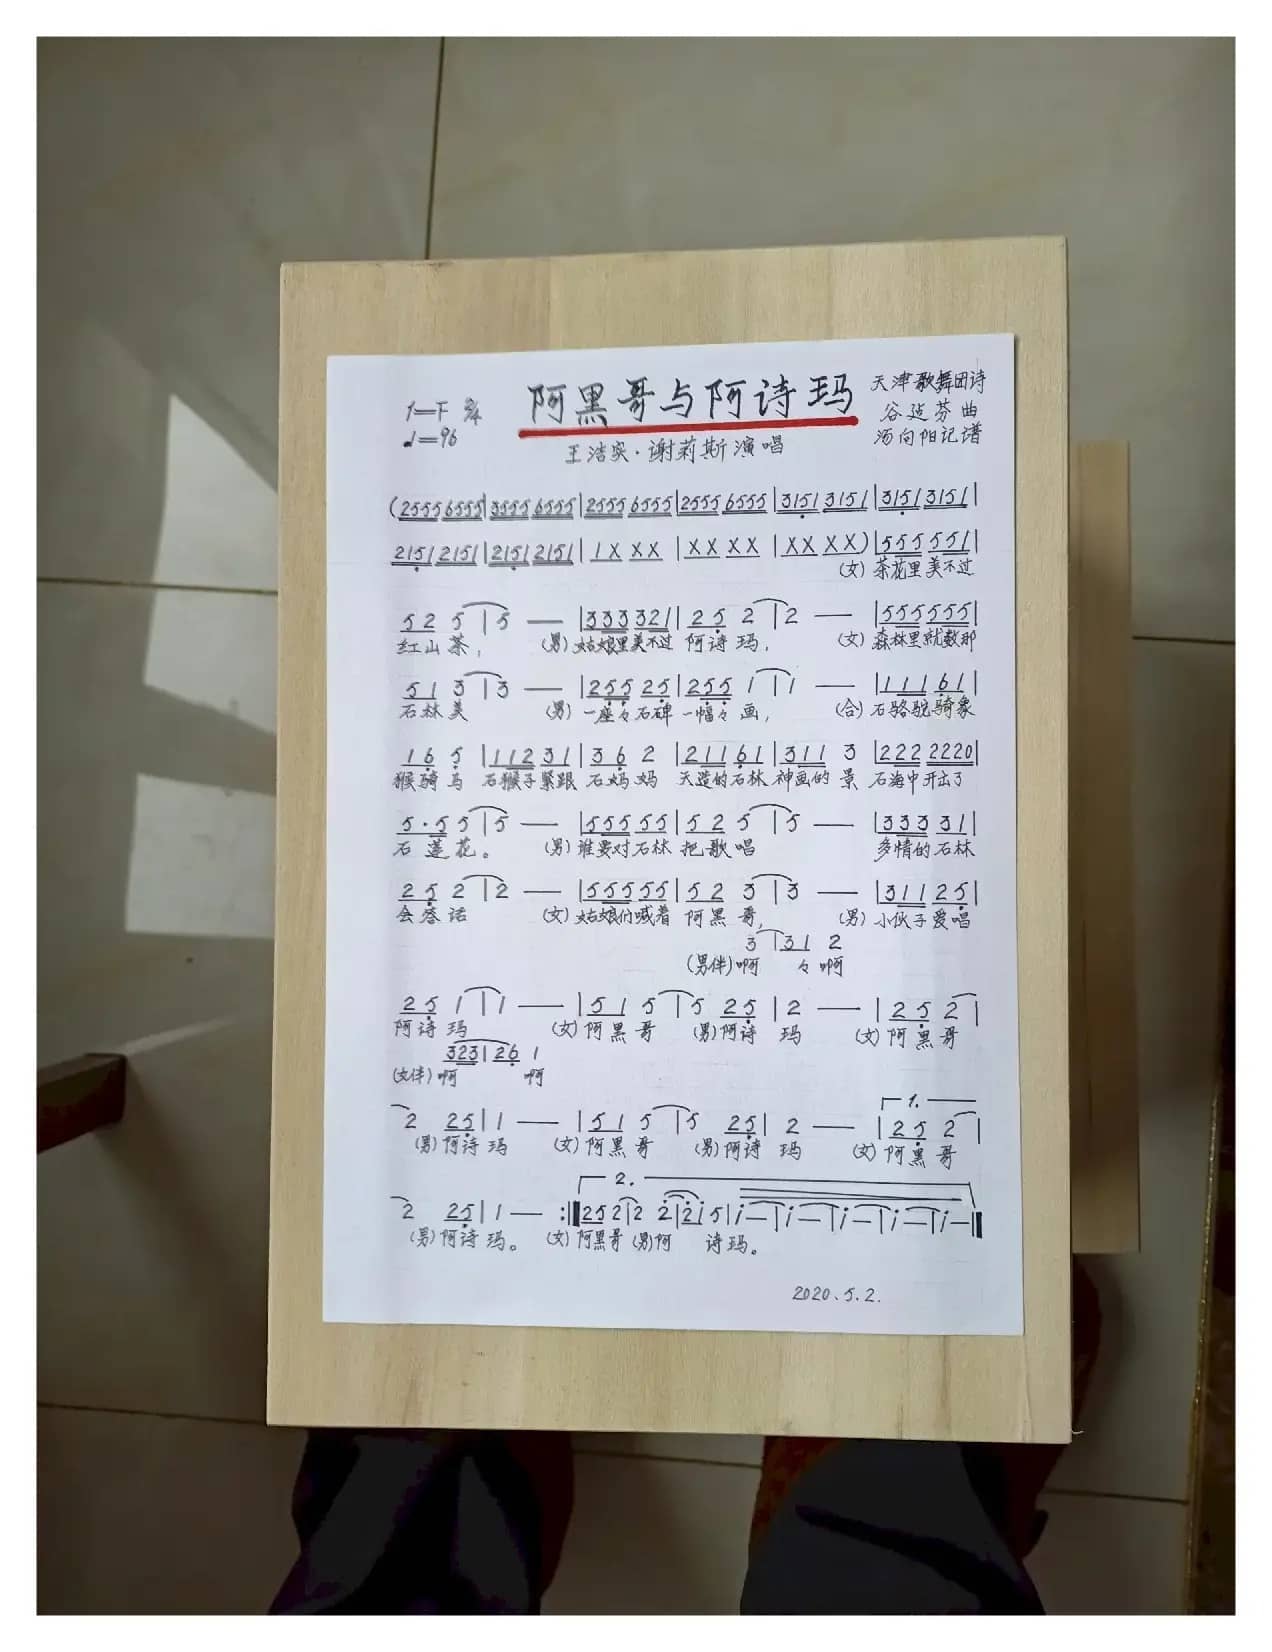 阿黑哥与阿诗玛
1=F 2/4
♩=96
天津歌舞团诗
谷延芬曲
汤向阳记谱
王洁实·谢莉斯演唱
(2555 6555|3555 6555|2555 6555|2555 6555|3151 3151|3151 3151|
2151 2151|2151 2151|1X XX|XX XX|XX XX)|555 551|
(女)茶花里美不过
52 5|5 —|333 321|25 2|2 —|555 555|
红山茶,(男)姑娘里美不过 阿诗玛,(女)森林里就数那
51 3|3 —|255 25|255 1|1 —|111 61|
石林美(男)一座々石碑 一幅々画,(合)石骆驼骑象
16 5|112 31|36 2 211 61|311 3|222 2220|
猴骑马 石猴子紧跟 石妈妈 天造的石林 神画的景 石海中开出了
5·5 5|5 —|555 55|52 5|5 —|333 31|
石莲花。(男)谁要对石林 把歌唱 多情的石林
25 2|2 —|555 55|52 3|3 —|311 25|
会答话(女)姑娘们喊着 阿黑哥,(男)小伙子爱唱
3|31 2
(男伴)啊 々啊
25 1|1 —|51 5|5 25|2 —|25 2|
阿诗玛(女)阿黑哥(男)阿诗玛(女)阿黑哥
323|26 1
(女伴)啊 啊
1.
2 25|1 —|51 5|5 25|2 —|25 2|
(男)阿诗玛(女)阿黑哥(男)阿诗玛(女)阿黑哥
2.
2 25|1 — :‖25 2|2 2|2i 5|i —|i —|i —|i —|i —‖
(男)阿诗玛。(女)阿黑哥(男)阿 诗玛。
2020.5.2.